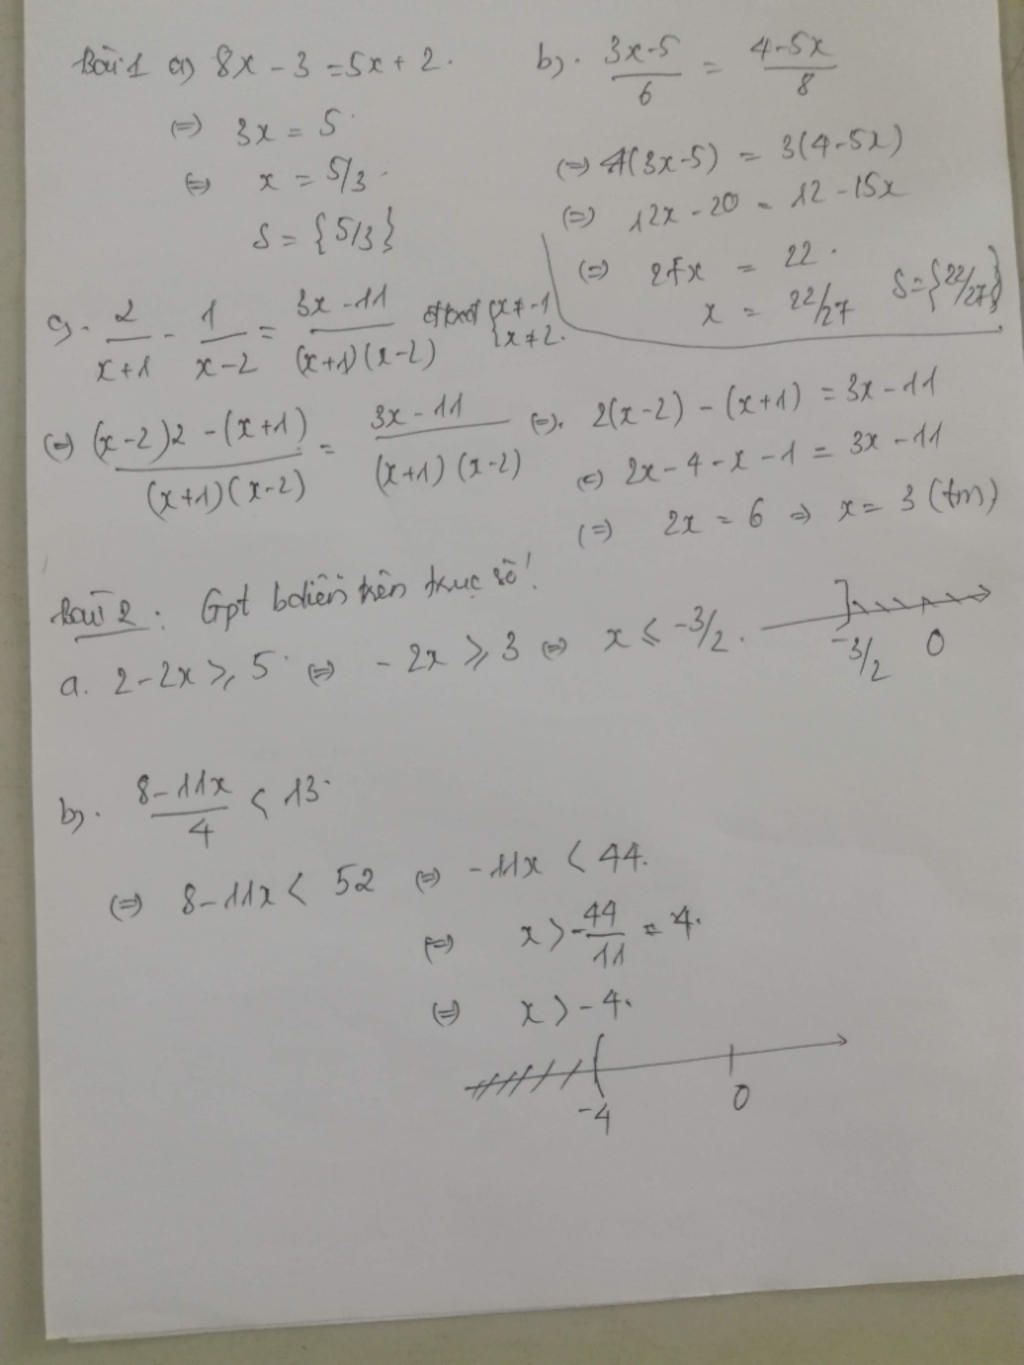 Bài 1 a) 8x - 3 = 5x + 2.
(=) 3x = 5
(=) x = 5/3.
S = {5/3}
b). (3x-5)/6 = (4-5x)/8
(=) 4(3x-5) = 3(4-5x)
(=) 12x - 20 = 12 - 15x
(=) 27x = 22.
x = 22/27 S={22/27}
c). 2/(x+1) - 1/(x-2) = (3x-11)/((x+1)(x-2)) {x ≠ -1
{x ≠ 2.
(=) ((x-2)2 - (x+1))/((x+1)(x-2)) = (3x-11)/((x+1)(x-2)) (=). 2(x-2) - (x+1) = 3x - 11
(=) 2x - 4 - x - 1 = 3x - 11
(=) 2x = 6 => x = 3 (tm)
Bài 2 : Gpt bdiễn trên trục số!
a. 2 - 2x ⩾ 5 (=) - 2x ⩾ 3 (=) x ⩽ -3/2.
-3/2 0
b). (8-11x)/4 < 13
(=) 8-11x < 52 (=) -11x < 44.
(=) x > -44/11 = 4.
(=) x > -4.
-4 0